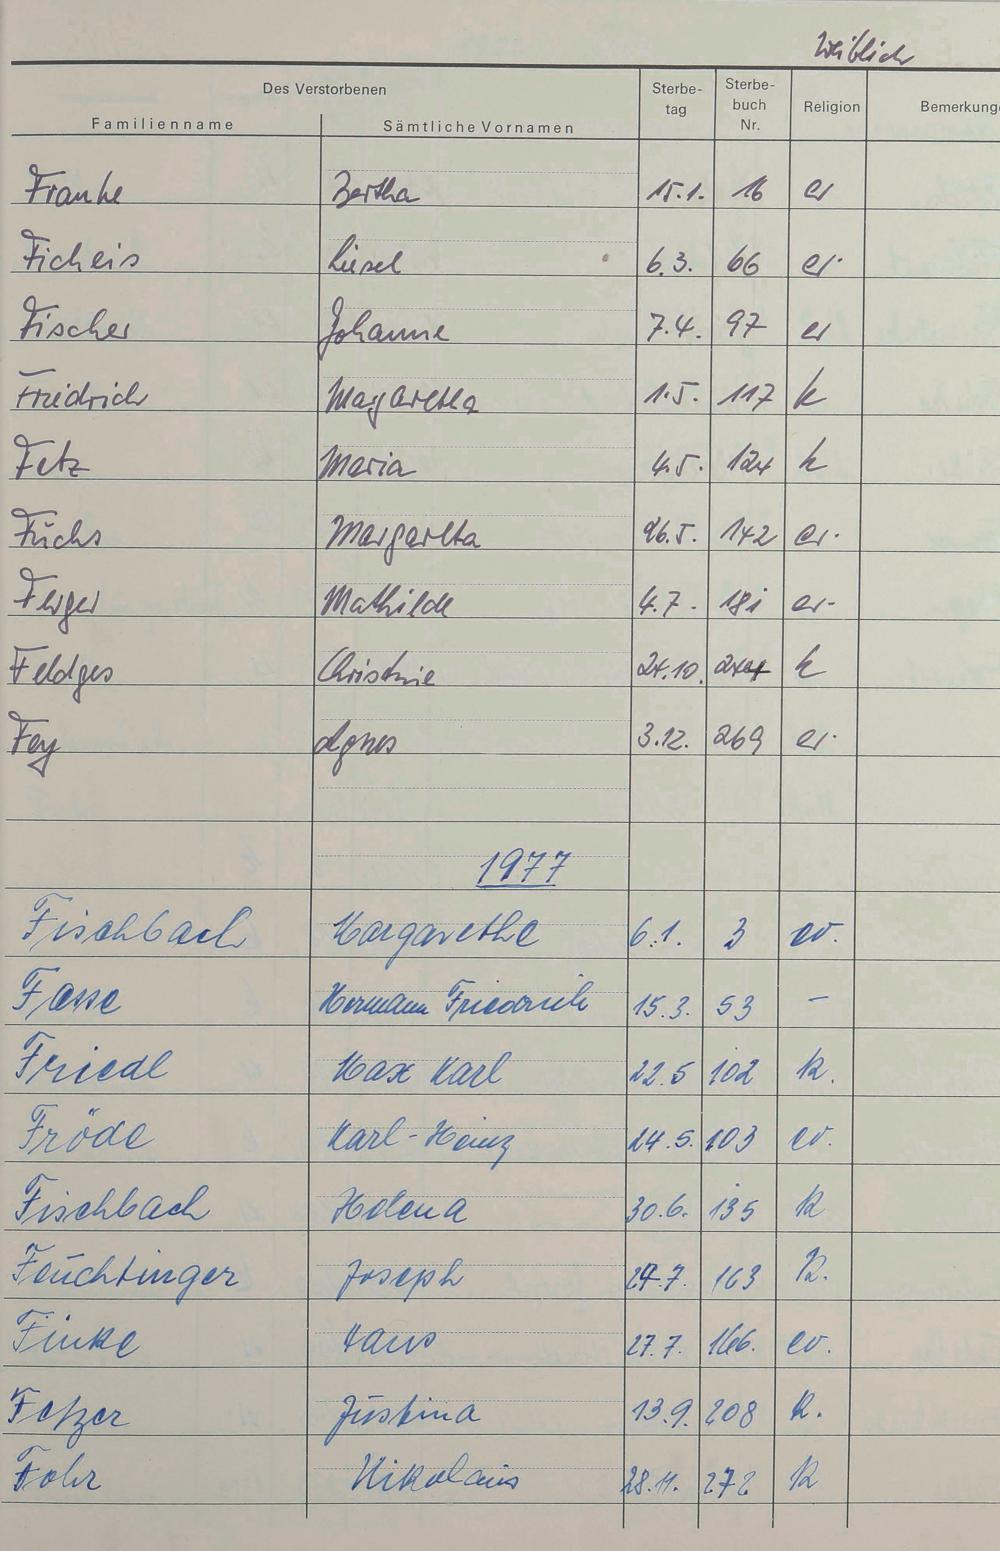 Weiblich
Des Verstorbenen
Familienname Sämtliche Vornamen Sterbe-tag Sterbe-buch Nr. Religion Bemerkunge
Franke Bertha 15.1. 16 er
Ficheis Liesel 6.3. 66 er.
Fischer Johanne 7.4. 97 er
Friedrich Margaretha 1.5. 117 k
Fetz Maria 4.5. 124 k
Fuchs Margaretha 26.5. 142 er.
Ferger Mathilde 4.7. 181 er.
Feldges Christine 24.10. 244 k
Fey Agnes 3.12. 269 er.
1977
Fischbach Margarethe 6.1. 3 ev.
Fasse Hermann Friedrich 15.3. 53 –
Friedl Max Karl 22.5 102 k.
Fröde Karl-Heinz 24.5. 103 ev.
Fischbach Helena 30.6. 135 k
Feuchtinger Joseph 27.7. 163 k.
Finke Hans 27.7. 166. ev.
Fetzer Justina 13.9. 208 k.
Fohr Nikolaus 28.11. 272 k